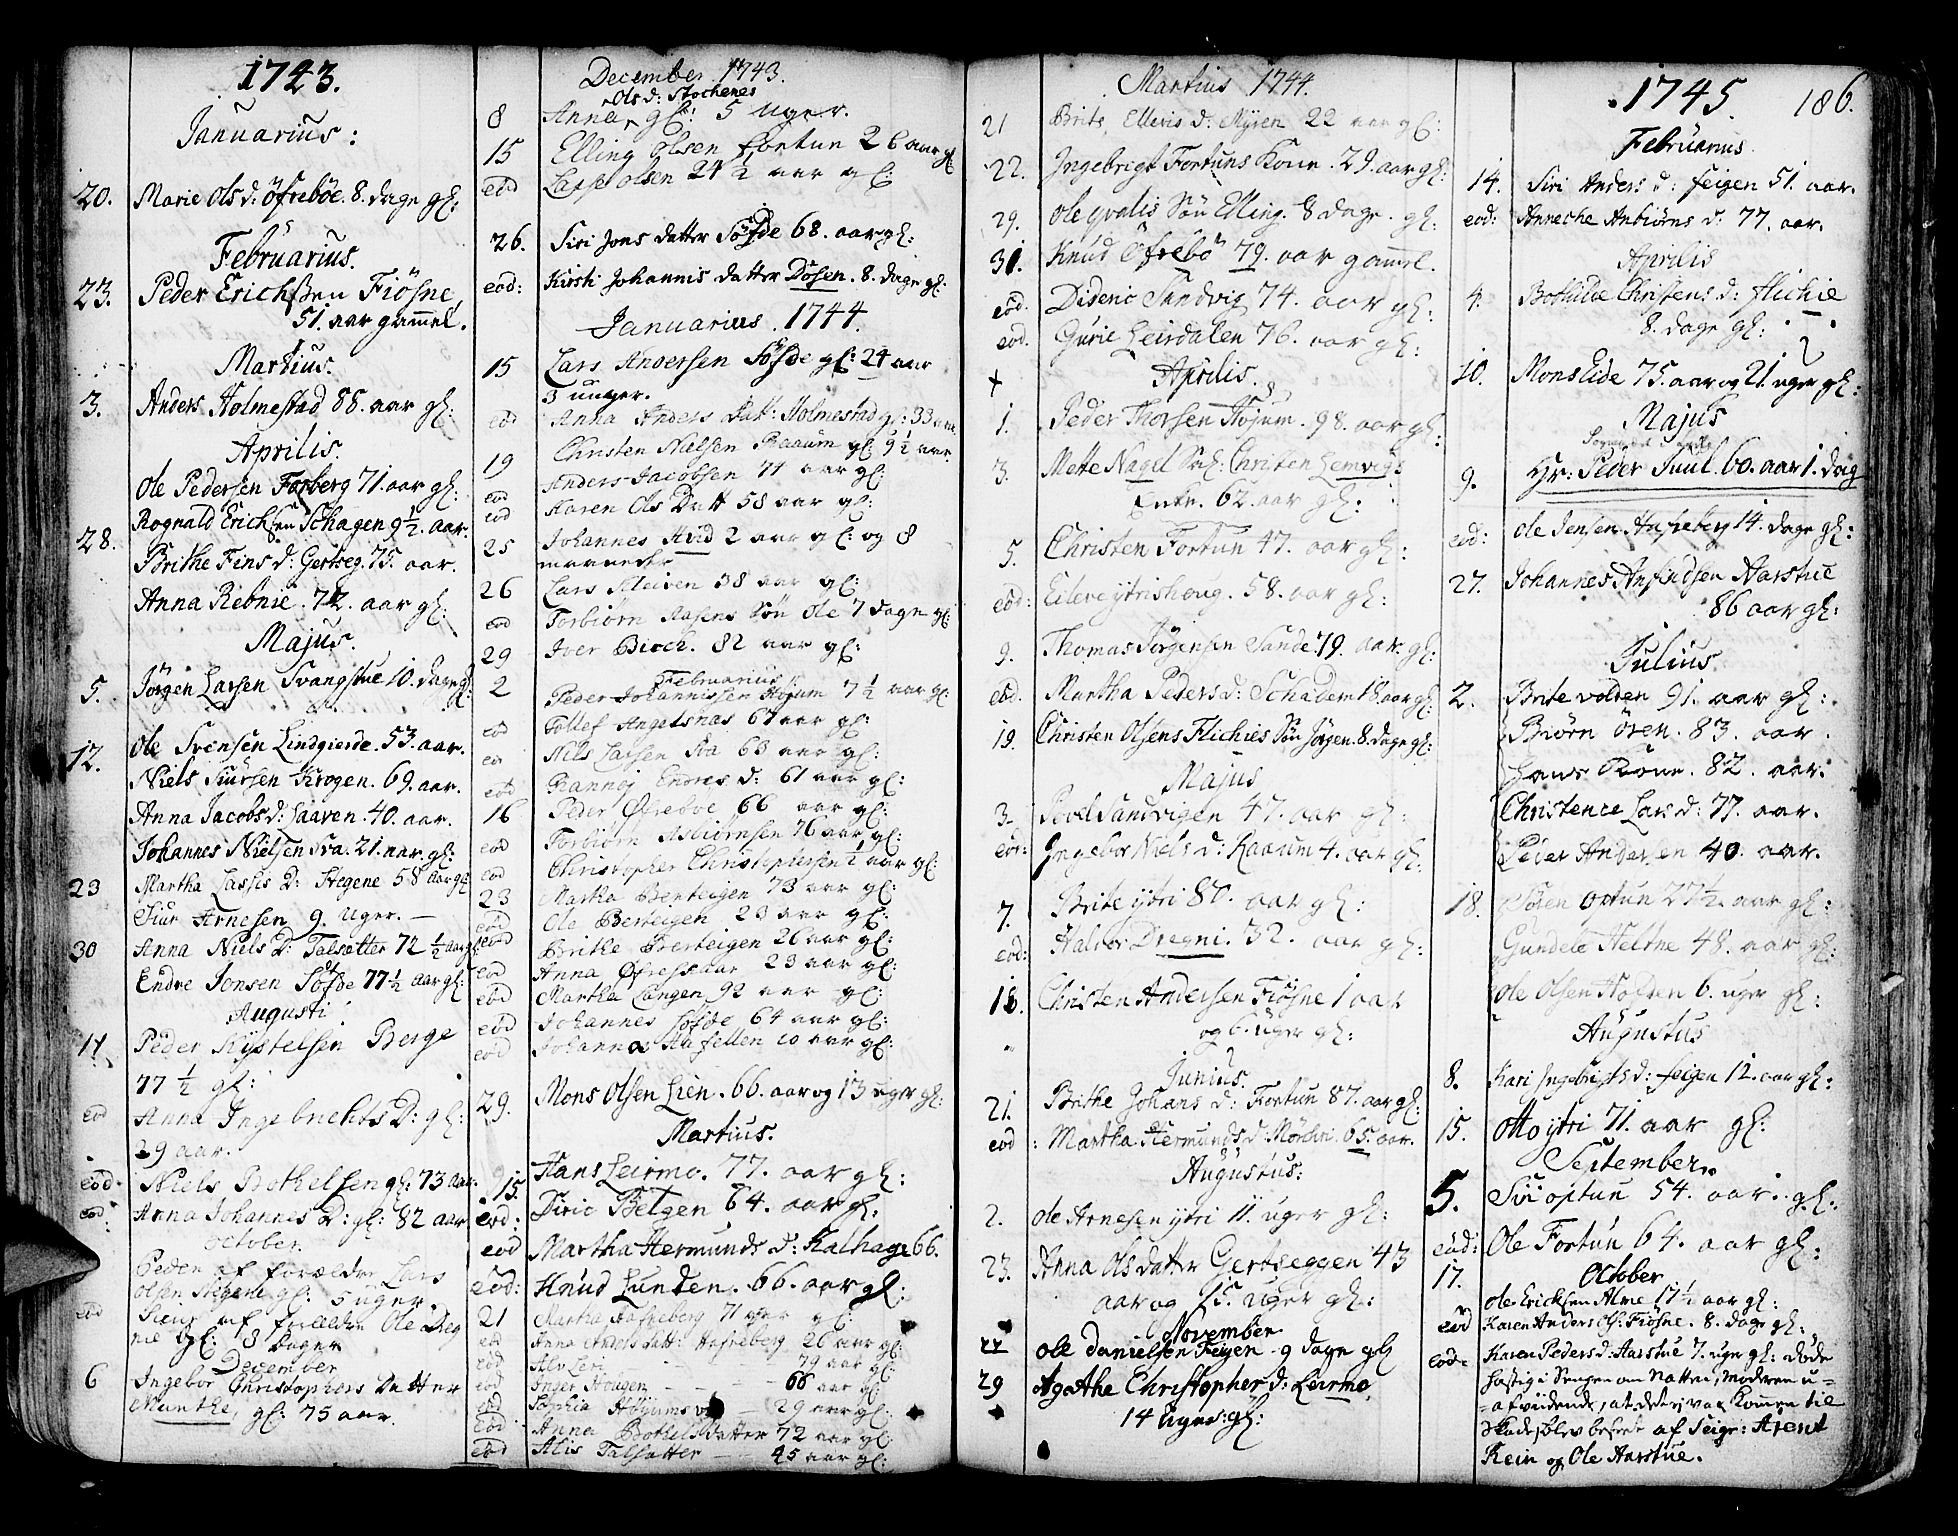 1743.
Januarius:
20. Marie Ols d: Öfreböe. 8. dage gl:
Februarius.
23. Peder Erichssen Fiösne,
51. aar gammel.
Martius.
3. Anders Holmestad 88. aar gl:
Aprilis.
Ole Pedersen Forberg 71. aar gl:
28. Rognald Erichsen Schagen 9½. aar.
Brithe Fins d: Gertseg. 75. aar.
Anna Rebnie. 72. aar gl:
Majus.
5. Jörgen Larsen Svangstue 10. dage gl:
12. Ole Svensen Lindgierde. 53. aar.
Niels Siursen Krogen. 69. aar.
Anna Jacobs d: Haaven. 40. aar.
Johannes Nielsen Sva. 21. aar. gl:
23 Martha Lassis D: Stegene 58 aar gl
Siur Arnesen 9. Uger. —
30 Anna Niels D: Talsætter 72 ½ aar gl:
Endre Jonsen Söfde 77½ aar gl:
Augusti
11. Peder Kystelsen Berge
77 ½ gl:
eod Anna Ingebrichts D: gl:
29 aar.
eod. Niels Bothelsen gl: 73 aar.
eod Anna Johannes D: gl: 82 aar
October.
Peder af forældre Lars
Olsen Stegene gl: 5 uger.
eod af forældre Ole Dreg
nie gl: 8 dager
December
6 Ingebor Christophers Datter
Munthe, gl: 75 aar.
December 1743.
Ols d: Stochenes
8 Anna gl: 5 Uger.
15 Elling Olsen Fortun 26 aar gl
eod Lasse Olsen 24 ½ aar gl:
26. Siri Jons datter Söfde 68. aar gl:
eod: Kirsti Johannis datter Dösen. 8. dage gl:
Januarius. 1744.
15 Lars Andersen Söfde gl: 24 aar
3 unger.
eod Anna Anders Datt: Holmestad gl: 33 aar.
19 Christen Nielsen Raaum gl: 9½ aar.
eod Anders Jacobsen 71 aar gl:
eod Karen Ols Datt 58 aar gl:
25 Johannes Hvid 2 aar gl: og 8
maaneder
26 Lars Kleiven 38 aar gl:
eod Torbiörn Aasens Sön Ole 7 dage gl:
29 Iver Birch. 82 aar gl:
Februarius
2 Peder Johannissen Höjum 7½ aar gl:
eod Tollef Angelsnas 67 aar gl:
eod Nils Lassen Sva 63 aar gl:
eod Rannei Endres d: 61 aar gl:
16 Peder Öfreböe 66 aar gl:
eod Torbiörn Asbiörnsen 76 aar gl:
eod Christopher Christophersen ½ aar gl:
23 Martha Berteigen 73 aar gl:
eod Ole Berteigen 23 aar gl:
eod Brithe Berteigen 26 aar gl:
eod Anna Öfregaar 23 aar gl:
eod Martha Langen 92 aar gl:
eod Johannes Söfde 64 aar gl:
eod Johannes Hafellen 10 aar gl:
29. Mons Olsen Lien. 66. aar og 13 uger gl:
Martius.
15. Hans Leirmo. 77. aar gl:
eod: Diric Betgen 64. aar gl:
eod Martha Hermunds d: Kalhage 66.
eod: Knud Lunden. 66. aar gl:
21 Martha Hafreberg 71 aar gl:
eod Anna Anders Datt: Hafreberg 26 aar gl:
eod Alv Leri - - - 79 aar gl:
eod Inger Hougen - - - 66 aar gl:
eod Sophia Höyums - 29 aar gl:
eod Anna Bothels datter 72 aar gl:
eod Alis Talsætter - - 45 aar gl:
Martius 1744.
21 Brite Ellevis d: Myren 22 aar gl:
22. Ingebrigt Fortuns Kone. 29. aar gl:
29. Ole qvalis Sön Elling. 8 dage. gl:
31. Knud Öfrebö 79. aar gammel.
eod. Dideric Sandvig 74. aar gl:
eod. Gurie Leirdalen 76. aar gl:
Aprilis.
1. Peder Thorsen Höjum. 98. aar gl:
3. Mette Nagel Christen Lemvigs
Enke. 62. aar gl:
5. Christen Fortun 47. aar gl:
eod: Eileve ytrishoug. 58. aar gl:
9. Thomas Jörgensen Sande 79. aar gl:
eod. Martha Peders d: Schadem 18 aar gl:
19. Christen Olsens Flichies Sön Jörgen. 8. dage gl:
Majus
3. Povel Sandvigen 47. aar gl:
eod: Ingebor Niels d: Raaum 4. aar gl:
7. Brite ytri 80. aar gl:
eod: Halvor Dregni. 32. aar gl:
18. Christen Andersen Fiösne 1 aar
og 6. uger gl:
Junius.
21. Brithe Johans d: Fortun 87. aar gl:
eod: Martha Hermunds d: Mörchri. 65. aar.
Augustus:
2. Ole Arnesen ytri 11. uger gl:
23. Anna Olsdatter Gertseggen 43
aar og 15. uger gl:
November
22 Ole Danielsen Feigen 9 dage gl
29 Agathe Christopher d: Leirmo
14 Uger gl:
1745. 186.
Februarius.
14. Siri Anders d: Feigen 51. aar.
eod: Anneche Anbiörns d: 77. aar.
Aprilis
4. Bothilde Christens d: Flichie
8. dage gl:
10. Mons Eide 75. aar og 21. uger gl:
Majus
9. Hr: Peder Juul. 60. aar 1. dag
eod: Ole Jensen Hafreberg 14. dage gl:
27. Johannes Anfindsen Aarstue
86 aar gl:
Julius.
2. Brite volden 91. aar gl:
Biörn Ören. 83. aar.
Hans Röne. 82. aar.
Christence Lars d: 77. aar.
Peder Andersen 40. aar.
18. Sören Optun 27½. aar gl:
Gundele Heltne 48. aar gl:
Ole Olsen Hofren 6. uger gl:
Augustus
8. Kari Ingebrigts d: Feigen 12. aar gl:
15. Otto ytri 71. aar gl:
September.
5. Siri optun 54. aar. gl.
eod: Ole Fortun 64. aar gl:
October
17. Ole Ericksen Alme 17½ aar gl:
eod Karen Anders d: Fiösne. 8. dage gl:
eod: Karen Peders d: Aarstue 7. uger gl: döde
hastig i Sengen om Natten, Moderen u-
afvidende, at det ej var kommen til
skade, blev beseet af Seigr: Arent
Kein og Ole Aarstue.